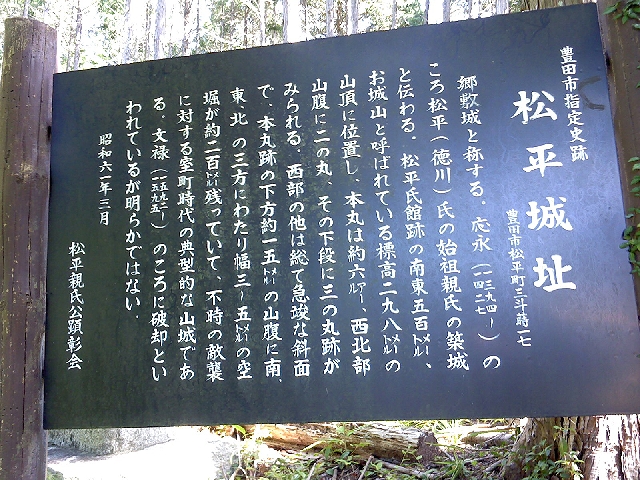 豊田市指定史跡
松平城址
豊田市松平町三斗蒔一七
郷敷城と称する。応永(一三九四ー一四二七)の
ころ松平(徳川)氏の始祖親氏の築城
と伝わる。松平氏館跡の南東五百㍍、
お城山と呼ばれている標高二九八㍍の
山頂に位置し、本丸は約六㌃、西北部
山腹に二の丸、その下段に三の丸跡が
みられる。西部の他は総て急竣な斜面
で、本丸跡の下方約一五㍍の山腹に南、
東、北の三方にわたり幅三〜五㍍の空
堀が約二百㍍残っていて、不時の敵襲
に対する室町時代の典型的な山城であ
る。文禄(一五九二ー一五九五)のころに破却とい
われているが明らかではない
昭和六一年三月
松平親氏公顕彰会